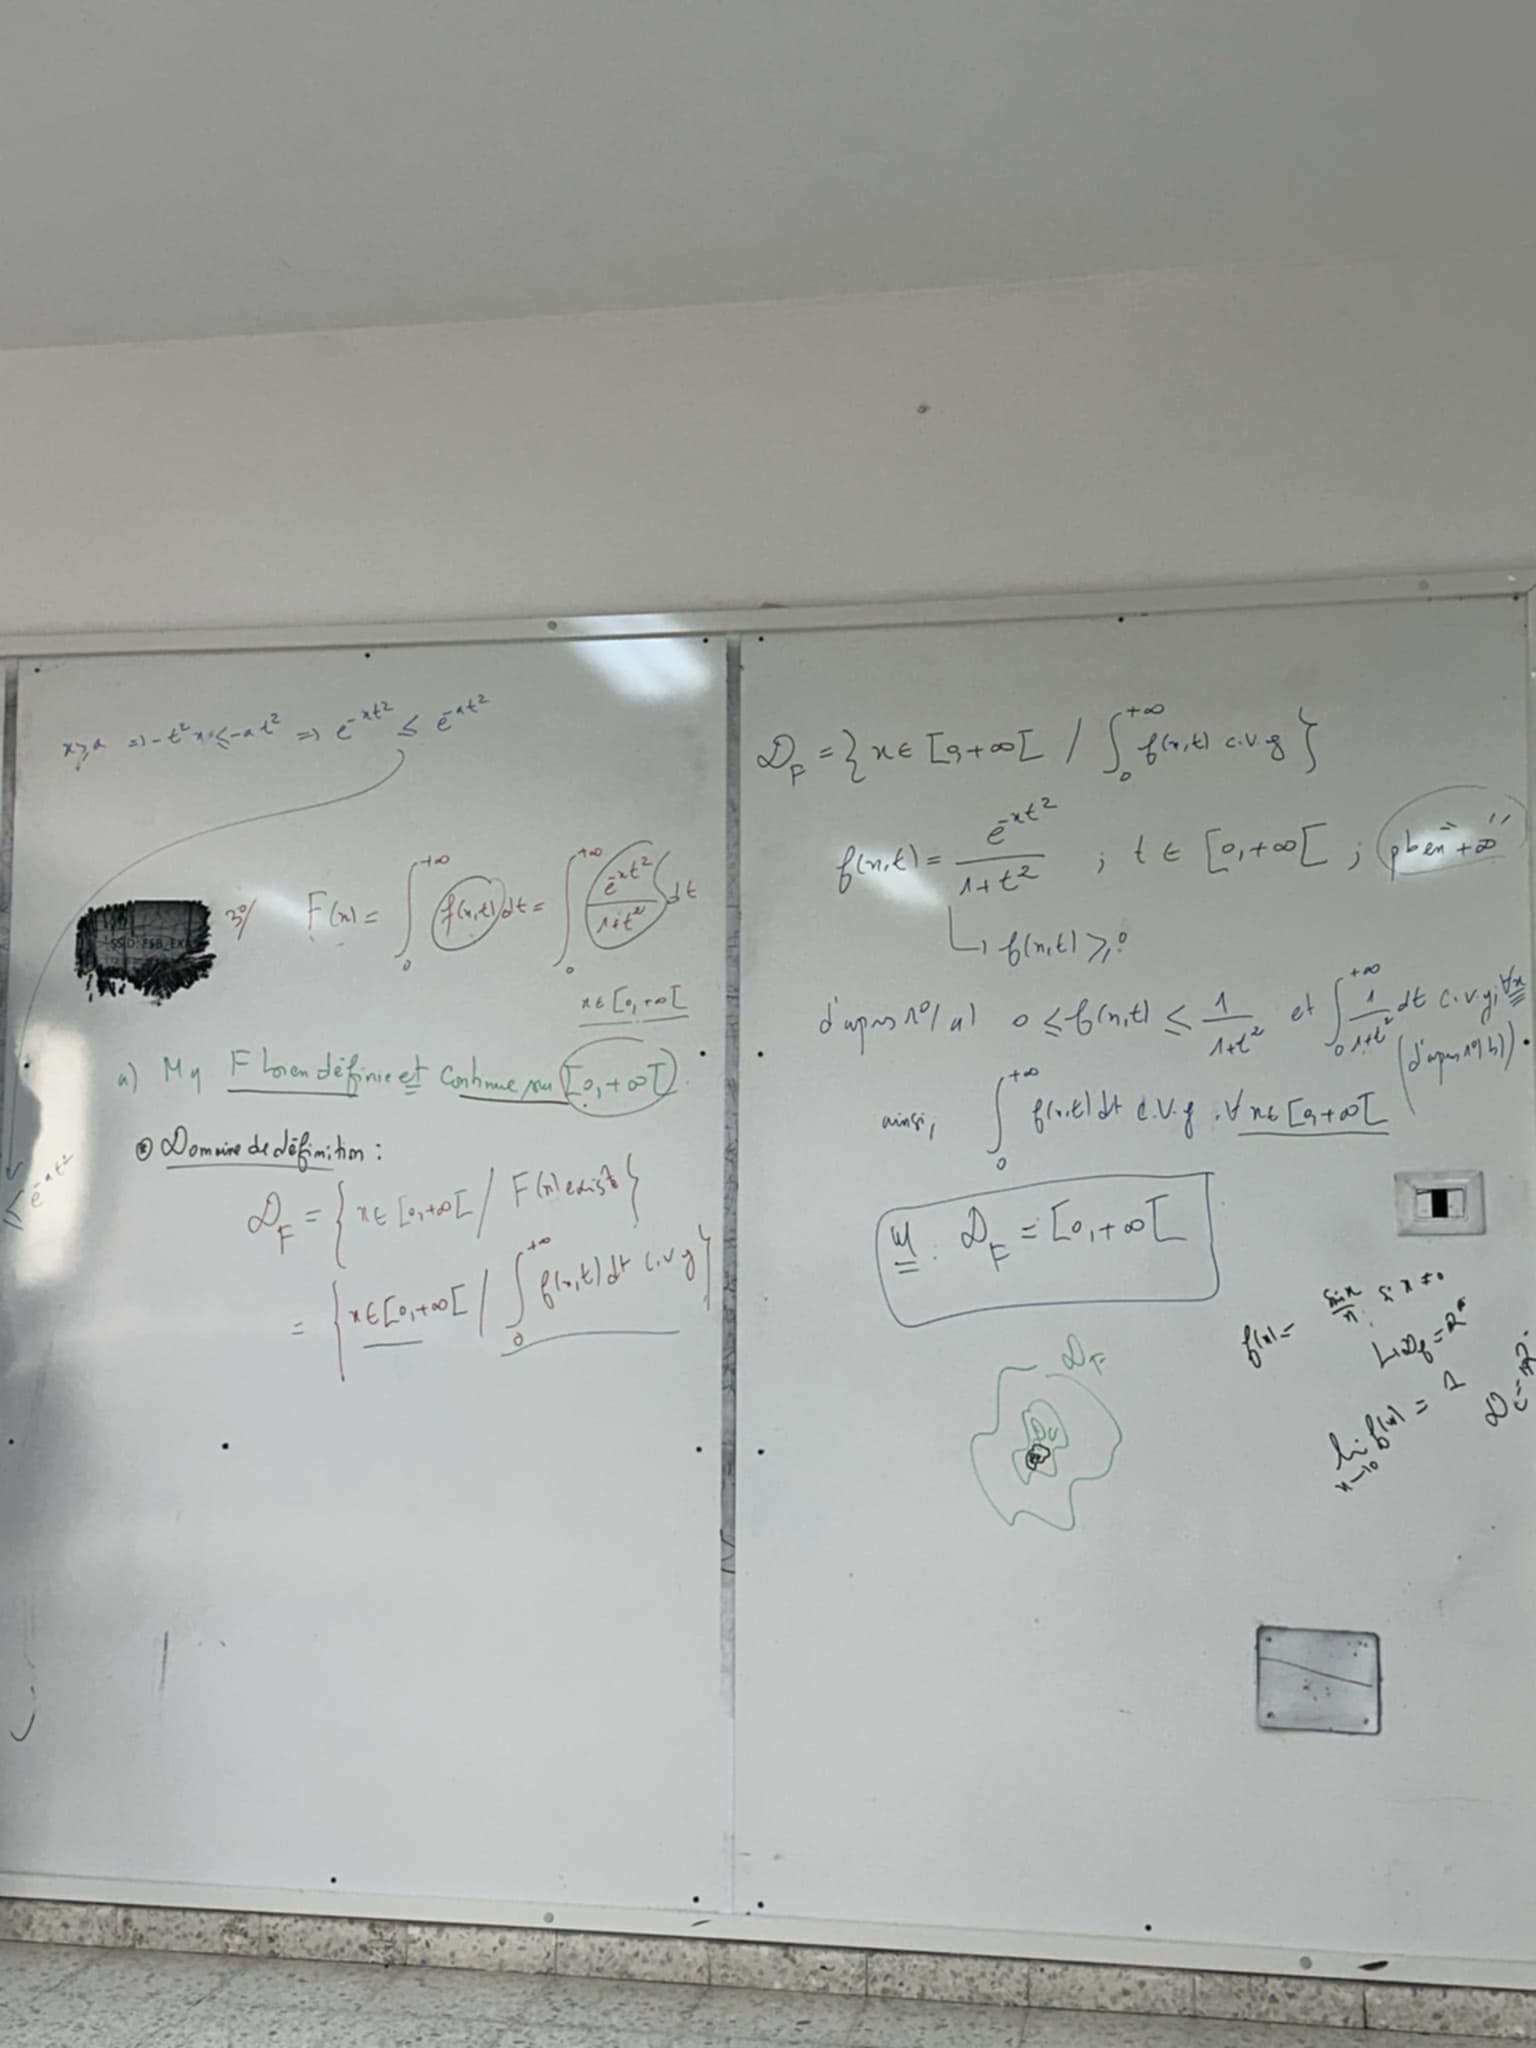 x ≥ a ⇒ -t² x ≤ -a t² ⇒ e^{-xt²} ≤ e^{-at²}
≤ e^{-at²}
3°/ F(x) = ∫₀^{+∞} f(x,t) dt = ∫₀^{+∞} e^{-xt²}/(1+t²) dt
x ∈ [0,+∞[
a) Mq F bien définie et continue su [0,+∞[
⊛ Domaine de définition :
D_F = { x ∈ [0,+∞[ / F(x) existe }
= { x ∈ [0,+∞[ / ∫₀^{+∞} f(x,t) dt c.v.g }
D_F = { x ∈ [0,+∞[ / ∫₀^{+∞} f(x,t) c.v.g }
f(x,t) = e^{-xt²}/(1+t²) ; t ∈ [0,+∞[ ; pb en "+∞"
↳ f(x,t) ≥ 0
d'apres 1°/ a) 0 ≤ f(x,t) ≤ 1/(1+t²) et ∫₀^{+∞} 1/(1+t²) dt c.v.g, ∀x
(d'apres 1°/ b))
ainsi, ∫₀^{+∞} f(x,t) dt c.v.g , ∀ x ∈ [0,+∞[
D_F = [0,+∞[
D_F
D_c
f(x) = sin x/x si x ≠ 0
↳ D_f = R*
lim_{x→0} f(x) = 1
D_c = R